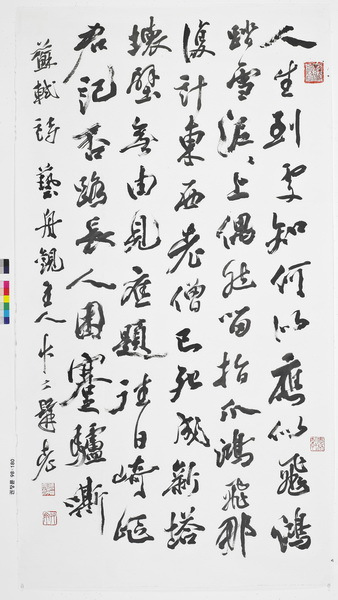 人生到處知何似應似飛鴻
踏雪泥泥上偶然留指爪鴻飛那
復計東西老僧已死成新塔
壞壁無由見舊題往日崎嶇
君記否路長人困蹇驢嘶
蘇軾詩 藝舟觀主人